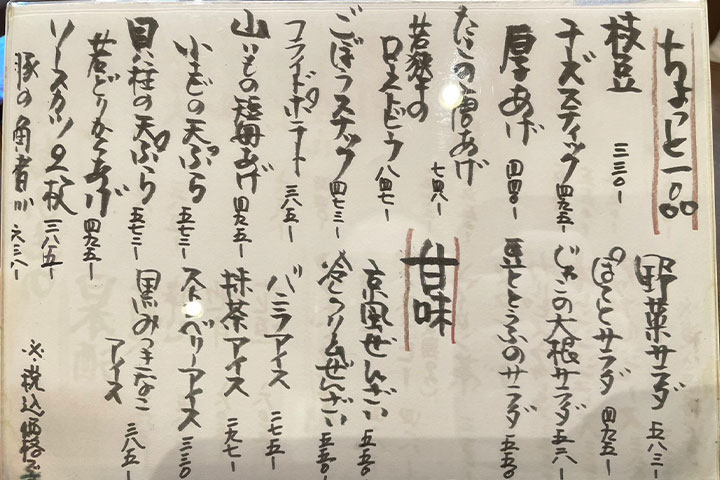 ちょっと一品
枝豆 三三〇-
チーズスティック 四九五-
厚あげ 四四〇-
たこの唐あげ 七四八-
若狭牛のローストビーフ 八四七-
ごぼうスナック 四七三-
フライドポテト 三八五-
山いもの短冊あげ 四九五-
小えびの天ぷら 五七三-
貝柱の天ぷら 五七三-
若どりからあげ 四九五-
ソースカツ2枚 三八五-
豚の角煮 六三八-
野菜サラダ 五八三-
ぽてとサラダ 四九五-
じゃこの大根サラダ 五二八-
豆とうふのサラダ 五五〇
甘味
京風ぜんざい 五五〇
冷しクリームぜんざい 五五〇-
バニラアイス 二七五-
抹茶アイス 二九七-
ストロベリーアイス 三三〇
黒みつきなこ
アイス 三八五-
※税込価格です